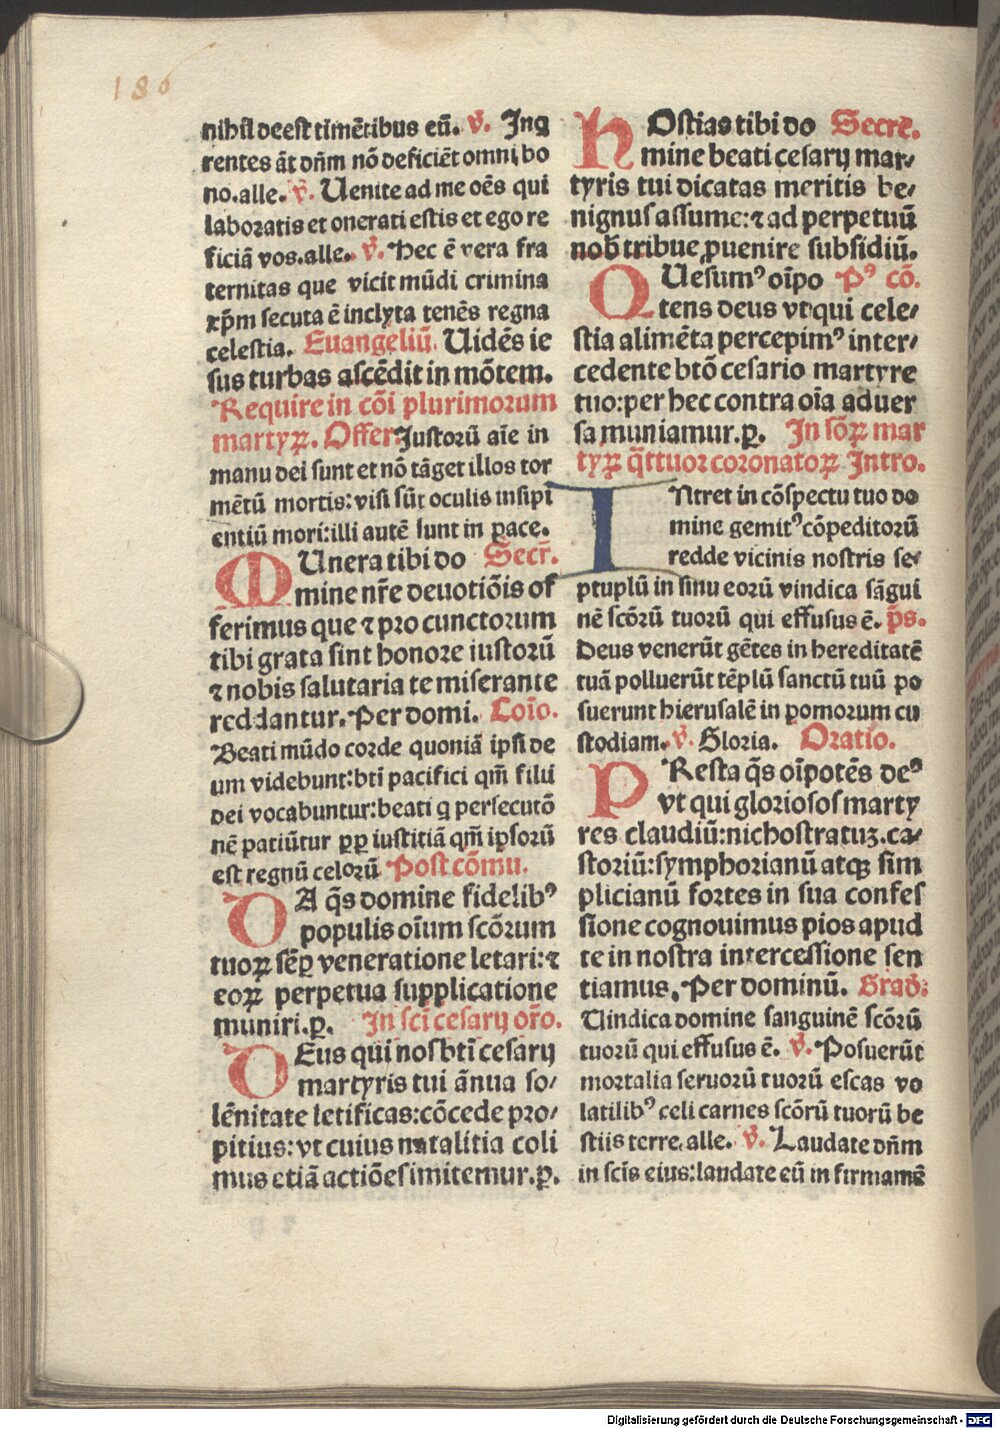 186
nihil deest timẽtibus eũ. ℣. Inq
rentes ãt dñm nõ deficiẽt omni bo
no.alle. ℣. Uenite ad me oẽs qui
laboratis et onerati estis et ego re
ficiã vos.alle. ℣. Hec ẽ vera fra
ternitas que vicit mũdi crimina
xp̃m secuta ẽ inclyta tenẽs regna
celestia. Euangeliũ. Uidẽs ie
sus turbas ascẽdit in mõtem.
Require in cõi plurimorum
martyꝝ. Offer. Iustorũ aĩe in
manu dei sunt et nõ tãget illos tor
mẽtũ mortis: visi sũt oculis insipi
entiũ mori: illi autẽ sunt in pace.
MUnera tibi do Secr̃.
mine nr̃e deuotiõis of
ferimus que ⁊ pro cunctorum
tibi grata sint honore iustorũ
⁊ nobis salutaria te miserante
reddantur. Per domi. Coĩo.
Beati mũdo corde quoniã ipsi de
um videbunt: btĩ pacifici qm̃ filii
dei vocabuntur: beati q persecutõ
nẽ patiũtur ꝓp iustitiã qm̃ ipsorũ
est regnũ celorũ Post cõmu.
DA q̃s domine fidelibꝰ
populis oĩum scõrum
tuoꝝ sẽꝑ veneratione letari: ⁊
eoꝝ perpetua supplicatione
muniri. ꝑ. In sci cesarij or̃o.
DEus qui nos btĩ cesarij
martyris tui ãnua so⸗
lẽnitate letificas: cõcede pro⸗
pitius: vt cuius natalitia coli
mus etiã actiões imitemur. ꝑ.
HOstias tibi do Secre.
mine beati cesarij mar⸗
tyris tui dicatas meritis be⸗
nignus assume: ⁊ ad perpetuũ
nob̃ tribue ꝓuenire subsidiũ.
QUesumꝰ oĩpo Pꝰ cõ.
tens deus vt qui cele⸗
stia alimẽta percepimꝰ inter⸗
cedente btõ cesario martyre
tuo: per hec contra oĩa aduer
sa muniamur. ꝑ. In sõꝝ mar
tyꝝ q̃ttuor coronatoꝝ Intro.
INtret in cõspectu tuo do
mine gemitꝰ cõpeditorũ
redde vicinis nostris se⸗
ptuplũ in sinu eorũ vindica sãgui
nẽ scõrũ tuorũ qui effusus ẽ. p̃s.
Deus venerũt gẽtes in hereditatẽ
tuã polluerũt tẽplũ sanctũ tuũ po
suerunt hierusalẽ in pomorum cu
stodiam. ℣. Gloria. Oratio.
PResta q̃s oĩpotẽs deꝰ
vt qui gloriosos marty
res claudiũ: nichostratuꝫ. ca⸗
storiũ: symphorianũ atqꝫ sim
plicianũ fortes in sua confes
sione cognouimus pios apud
te in nostra intercessione sen
tiamus. Per dominũ. Grad̃:
Uindica domine sanguinẽ scõrũ
tuorũ qui effusus ẽ. ℣. Posuerũt
mortalia seruorũ tuorũ escas vo
latilibꝰ celi carnes scõrũ tuorũ be
stiis terre. alle. ℣. Laudate dñm
in scis eius: laudate eũ in firmamẽ
Digitalisierung gefördert durch die Deutsche Forschungsgemeinschaft - DFG